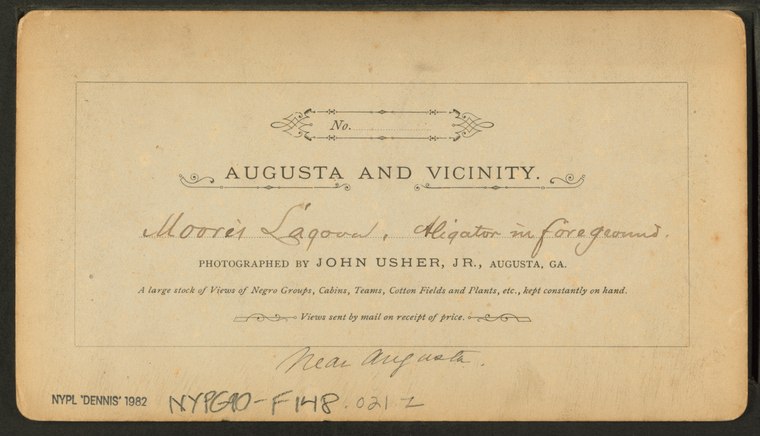 No.
AUGUSTA AND VICINITY.
Moore's Lagoon, Aligator in foreground.
PHOTOGRAPHED BY JOHN USHER, JR., AUGUSTA, GA.
A large stock of Views of Negro Groups, Cabins, Teams, Cotton Fields and Plants, etc., kept constantly on hand.
Views sent by mail on receipt of price.
Near Augusta.
NYPL "DENNIS" 1982 NYPG90-F148.021 Z